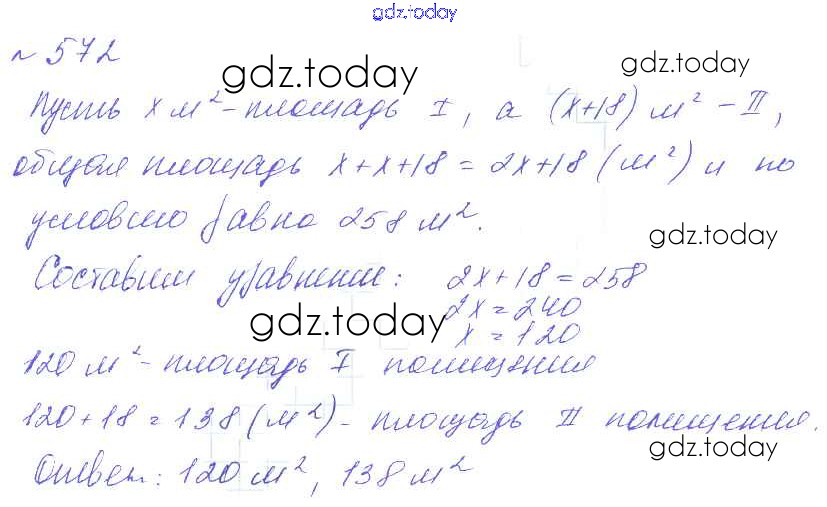 gdz.today
№ 572
gdz.today
gdz.today
Пусть х м² - площадь I, а (х+18) м² - II,
общая площадь х+х+18 = 2х+18 (м²) и по
условию равна 258 м².
gdz.today
Составим уравнение: 2х+18=258
2х=240
gdz.today
х=120
120 м² - площадь I помещения
120+18=138 (м²) - площадь II помещения.
gdz.today
Ответ: 120 м², 138 м²